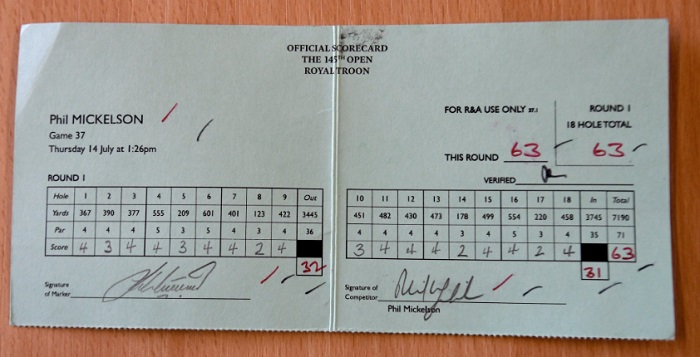 OFFICIAL SCORECARD
THE 145TH OPEN
ROYAL TROON
Phil MICKELSON
Game 37
Thursday 14 July at 1:26pm
ROUND 1
Hole 1 2 3 4 5 6 7 8 9 Out
Yards 367 390 377 555 209 601 401 123 422 3445
Par 4 4 4 5 3 5 4 3 4 36
Score 4 3 4 4 3 4 4 2 4
32
Signature
of Marker
FOR R&A USE ONLY 37.1
ROUND 1
18 HOLE TOTAL
THIS ROUND 63
63
VERIFIED
10 11 12 13 14 15 16 17 18 In Total
451 482 430 473 178 499 554 220 458 3745 7190
4 4 4 4 3 4 5 3 4 35 71
3 4 4 4 2 4 4 2 4 63
31
Signature of
Competitor
Phil Mickelson